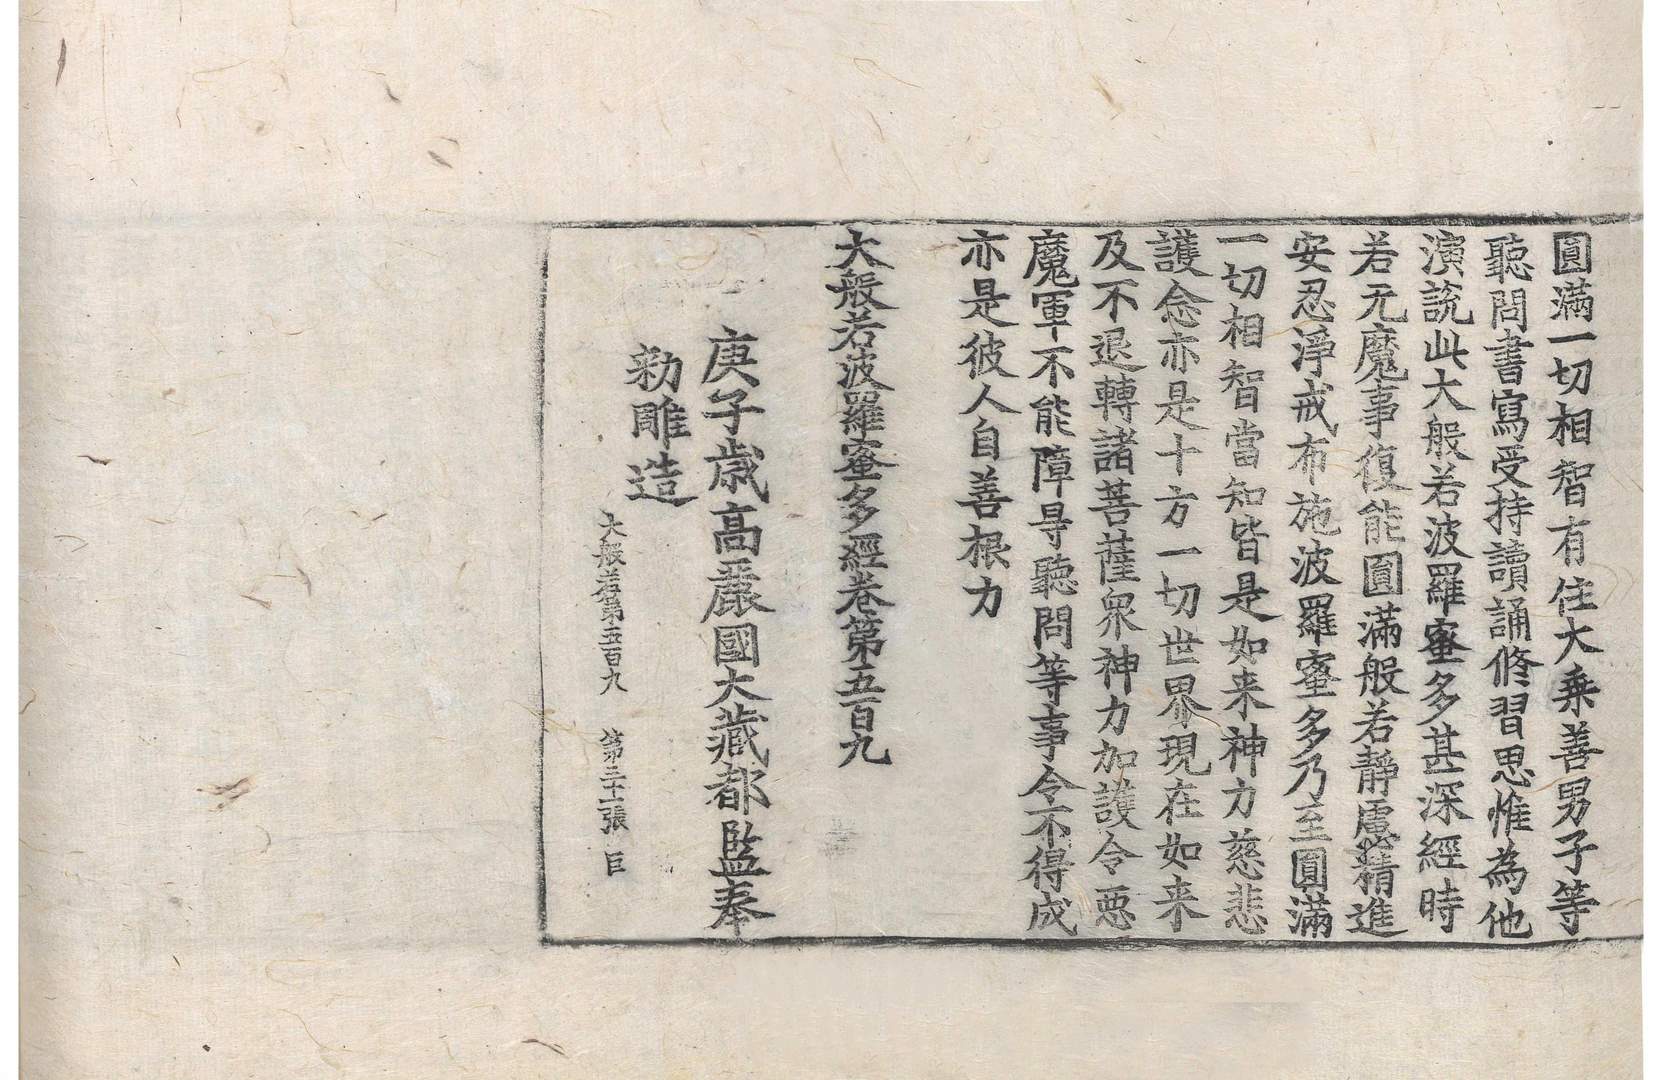 圓滿一切相智有住大乘善男子等
聽問書寫受持讀誦修習思惟為他
演說此大般若波羅蜜多甚深經時
若无魔事復能圓滿般若靜慮精進
安忍淨戒布施波羅蜜多乃至圓滿
一切相智當知皆是如来神力慈悲
護念亦是十方一切世界現在如来
及不退轉諸菩薩衆神力加護令惡
魔軍不能障㝵聽問等事令不得成
亦是彼人自善根力
大般若波羅蜜多經卷第五百九
庚子歲高麗國大藏都監奉
勑雕造
大般若第五百九 第三十一張 巨